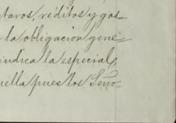 tavos, réditos y gas-
la obligacion gene-
indica la especial,
uella puestos Seño-